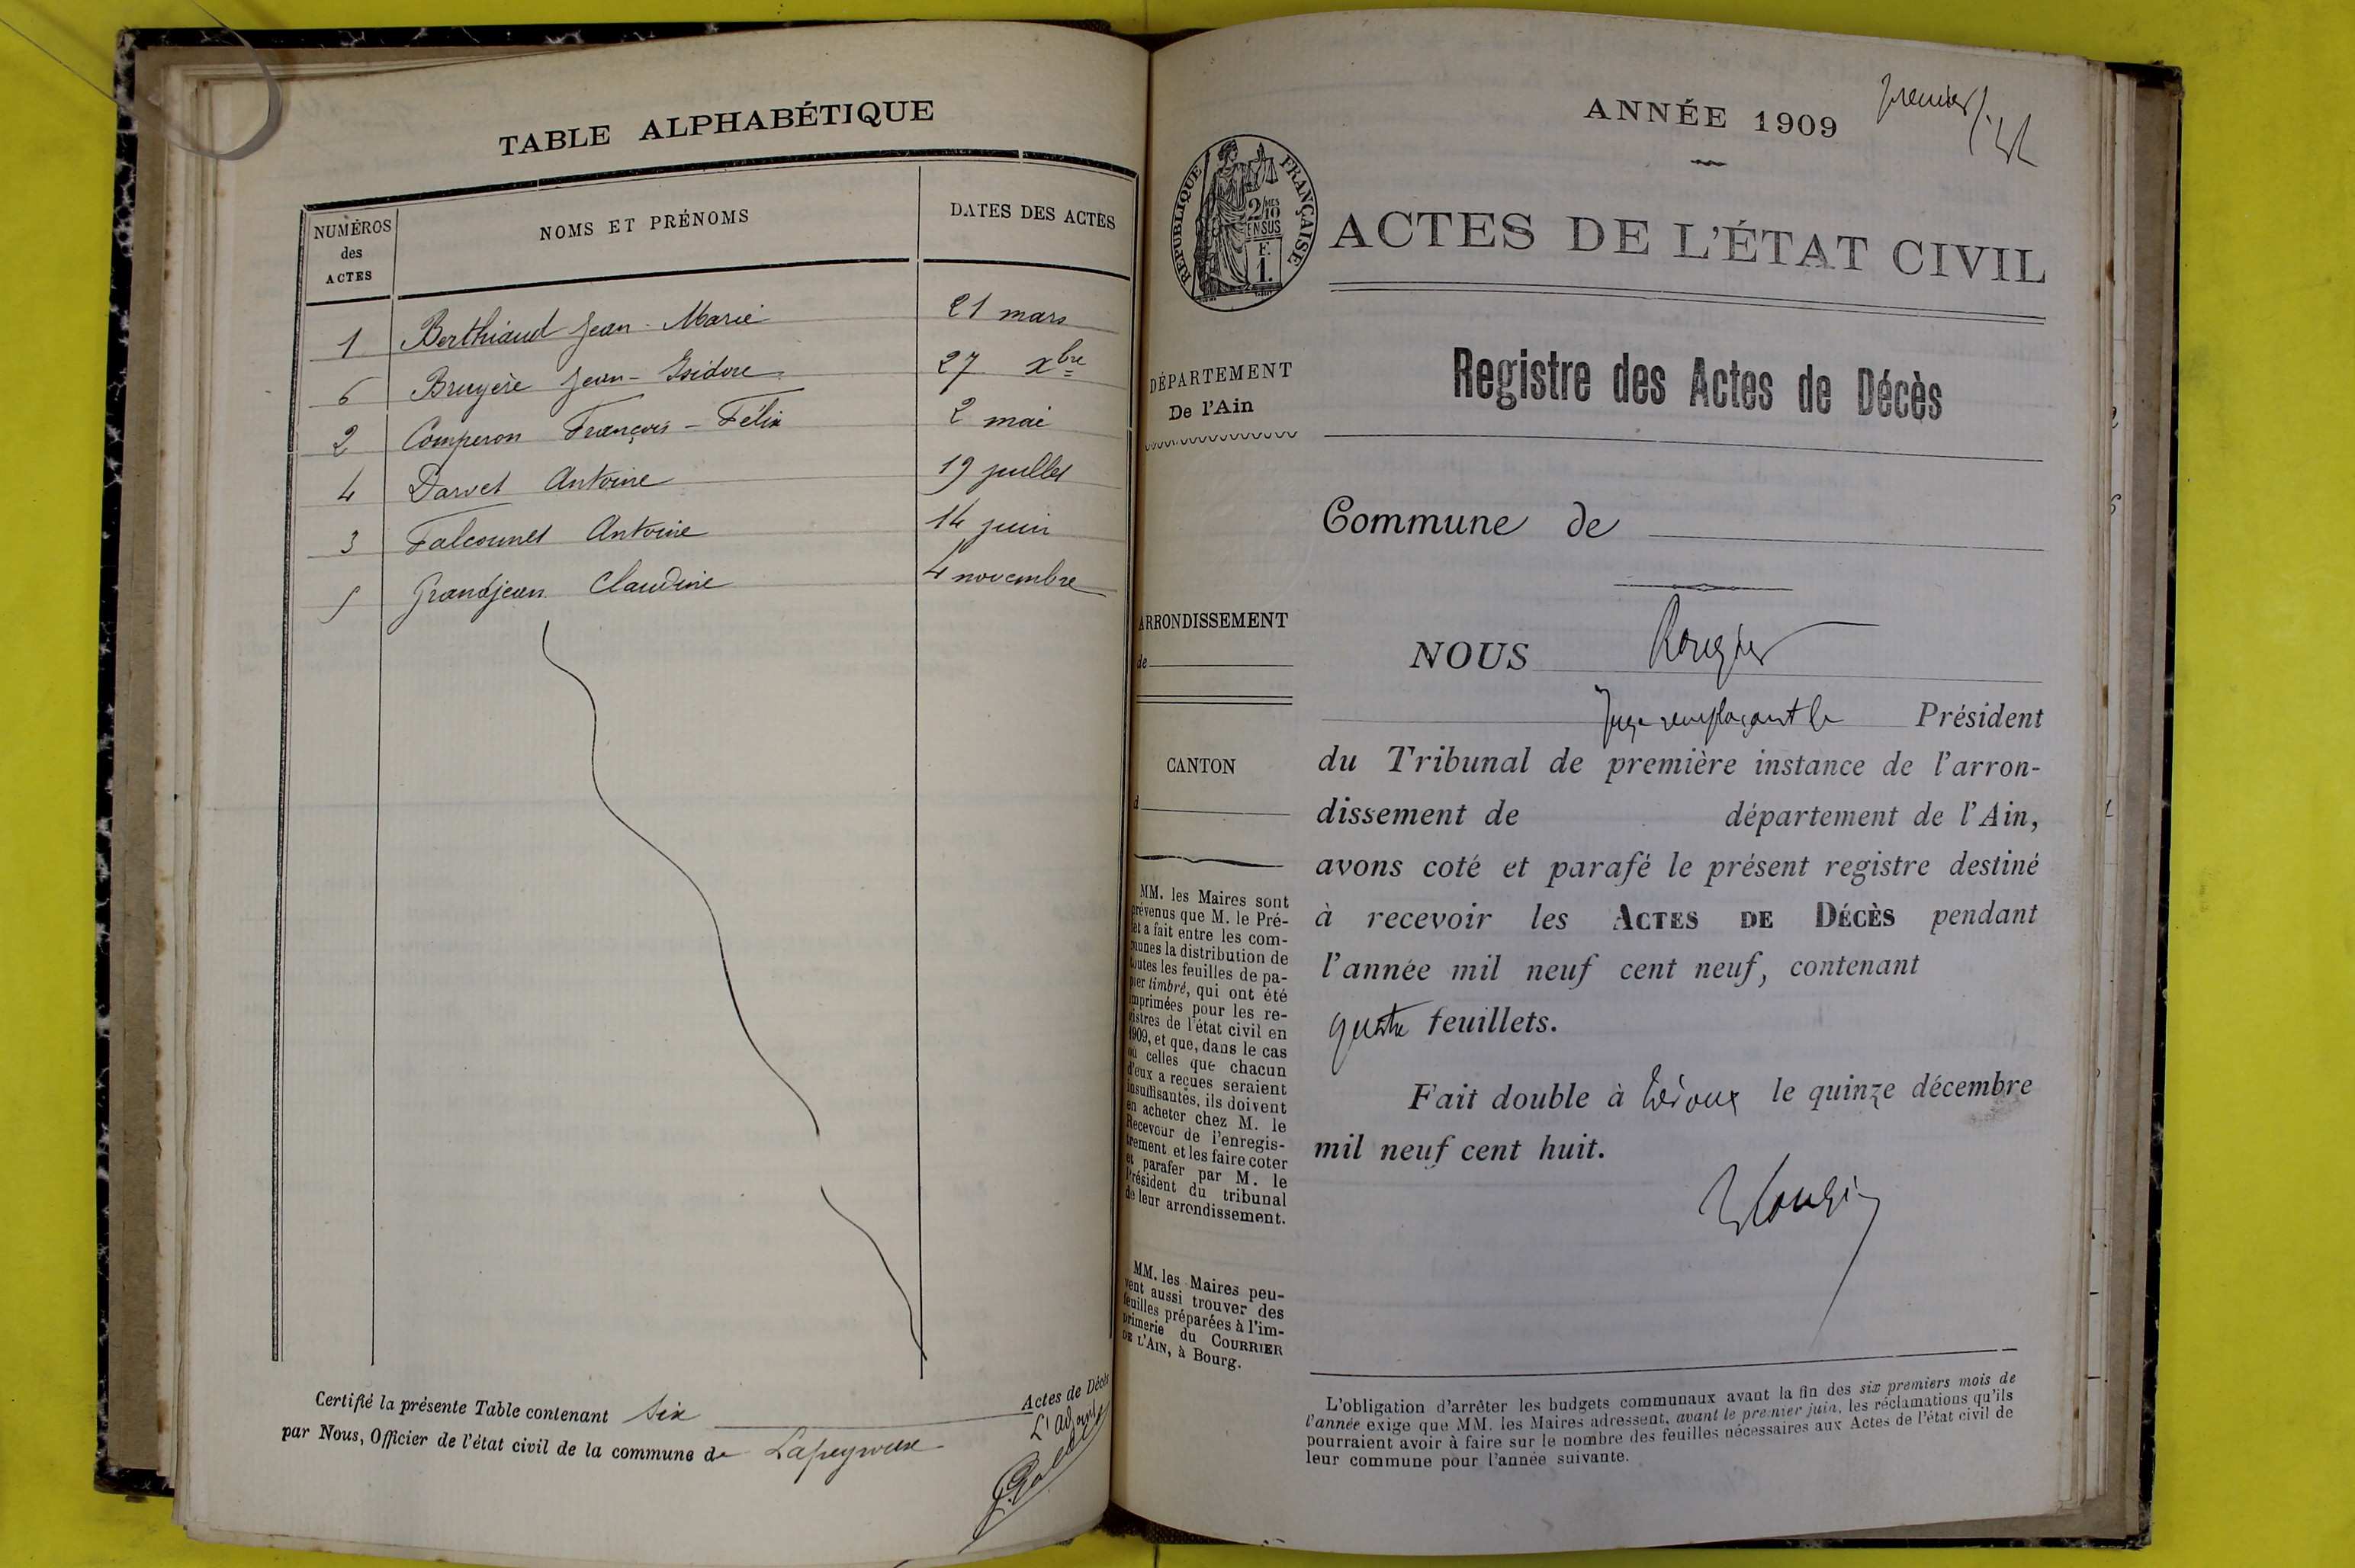 TABLE ALPHABÉTIQUE
NUMÉROS
des
ACTES
NOMS ET PRÉNOMS
DATES DES ACTES
1 Berthiaud Jean-Marie 21 mars
6 Bruyère Jean-Isidore 27 Xbre
2 Comperon François-Félix 2 mai
4 Darvet Antoine 19 juillet
3 Falconnet Antoine 14 juin
5 Grandjean Claudine 4 novembre
Certifié la présente Table contenant Six Actes de Décès
par Nous, Officier de l'état civil de la commune de Lapeyrouse
L'adjoint
ANNÉE 1909
premier
RÉPUBLIQUE FRANÇAISE
2/10MES
EN SUS
F.
1.
ACTES DE L'ÉTAT CIVIL
DÉPARTEMENT
De l'Ain
ARRONDISSEMENT
de
CANTON
d
MM. les Maires sont
prévenus que M. le Pré-
fet a fait entre les com-
munes la distribution de
toutes les feuilles de pa-
pier timbré, qui ont été
imprimées pour les re-
gistres de l'état civil en
1909, et que, dans le cas
où celles que chacun
d'eux a reçues seraient
insuffisantes, ils doivent
en acheter chez M. le
Receveur de l'enregis-
trement et les faire coter
et parafer par M. le
Président du tribunal
de leur arrondissement.
MM. les Maires peu-
vent aussi trouver des
feuilles préparées à l'im-
primerie du COURRIER
DE L'AIN, à Bourg.
Registre des Actes de Décès
Commune de
NOUS Rougier
Juge remplaçant le Président
du Tribunal de première instance de l'arron-
dissement de département de l'Ain,
avons coté et parafé le présent registre destiné
à recevoir les ACTES DE DÉCÈS pendant
l'année mil neuf cent neuf, contenant
quatre feuillets.
Fait double à Trévoux le quinze décembre
mil neuf cent huit.
Rougier
L'obligation d'arrêter les budgets communaux avant la fin des six premiers mois de
l'année exige que MM. les Maires adressent, avant le premier juin, les réclamations qu'ils
pourraient avoir à faire sur le nombre des feuilles nécessaires aux Actes de l'état civil de
leur commune pour l'année suivante.